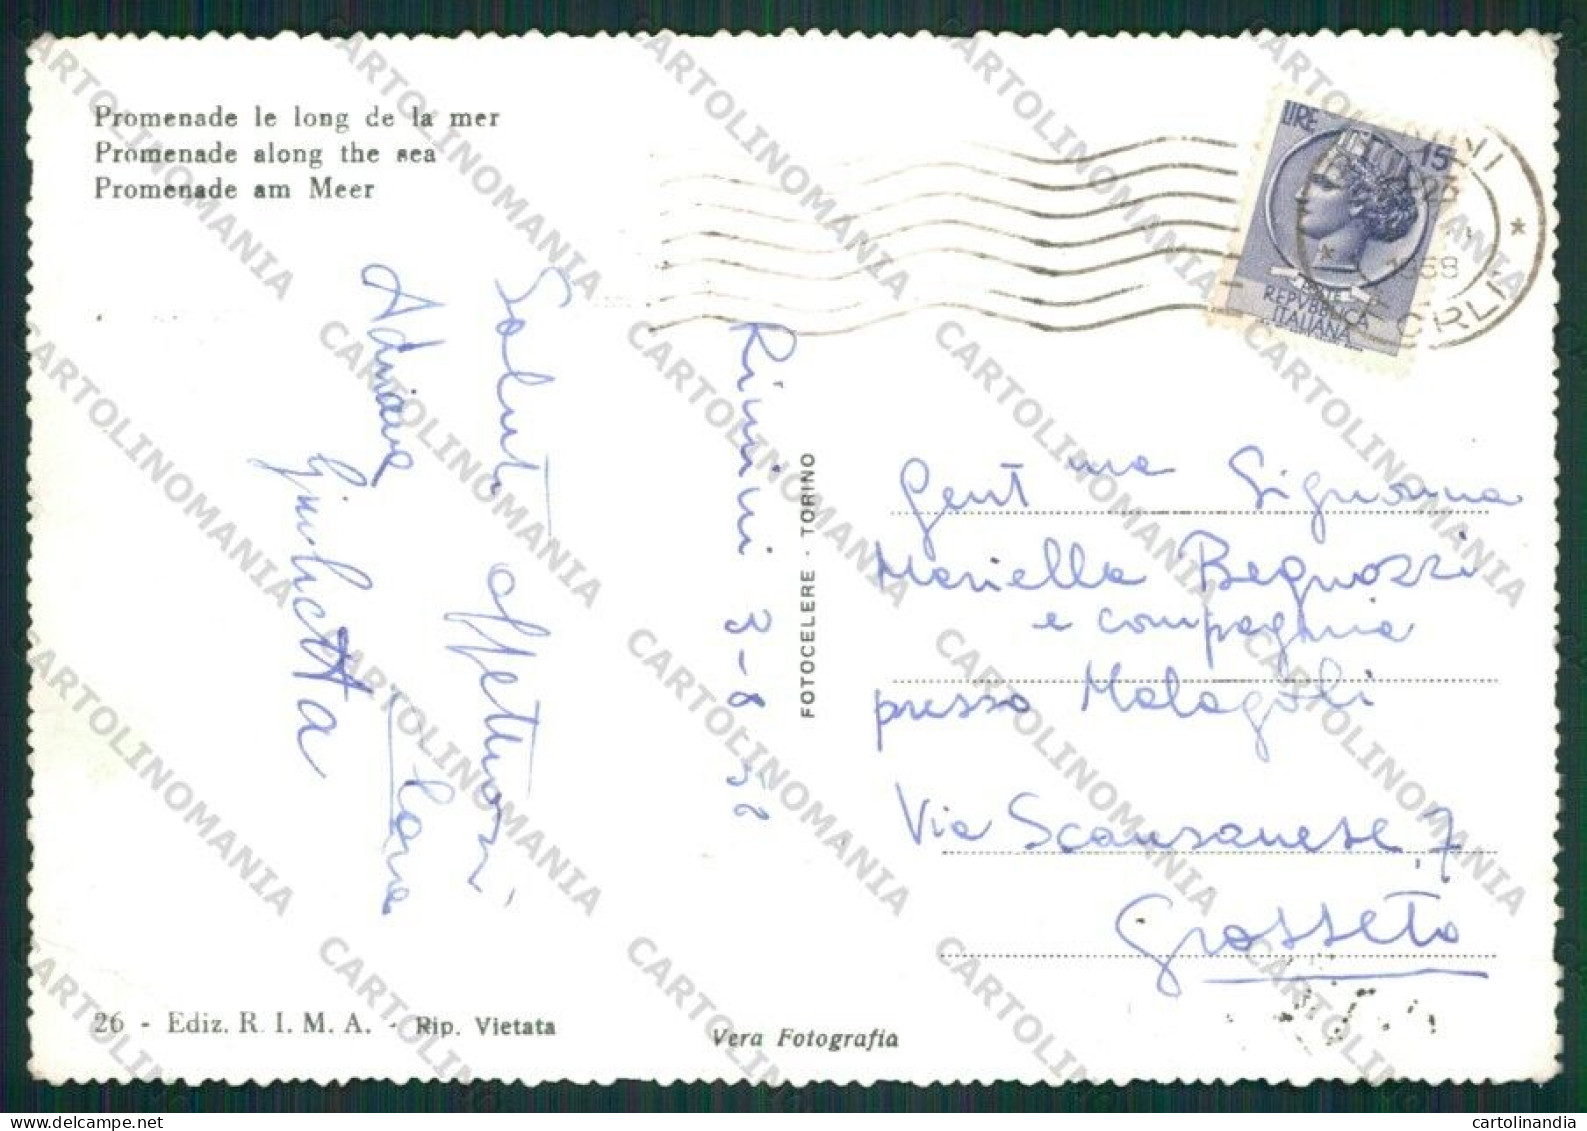 Promenade le long de la mer
Promenade along the sea
Promenade am Meer
LIRE 15
REPVBBLICA
ITALIANA
1958
Saluti affettuosi
Adriana
Giulietta
Rimini 3-8-58
FOTOCELERE - TORINO
Gent ma Signorina
Mariella Begnozzi
e compagnia
presso Malagoli
Via Scansanese, 7
Grosseto
26 - Ediz. R. I. M. A. - Rip. Vietata
Vera Fotografia
CARTOLINOMANIA
cartolinandia